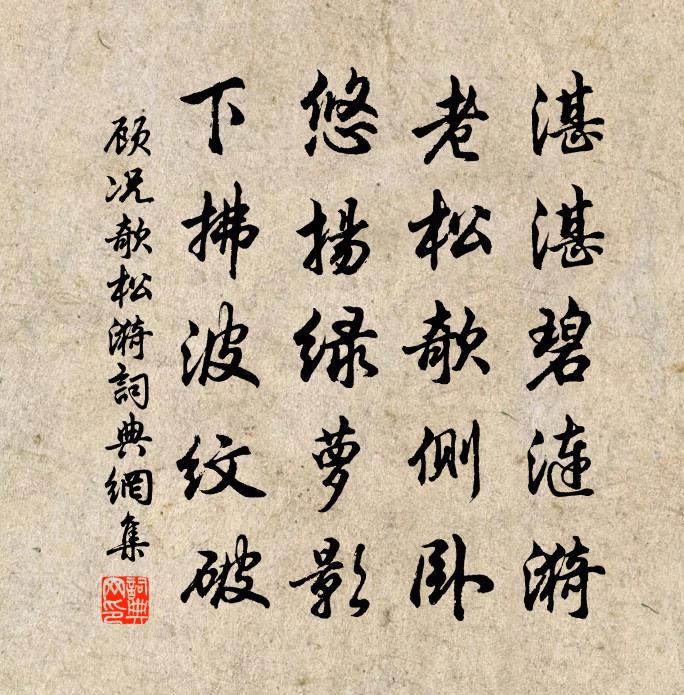 湛湛碧涟漪
老松欹侧卧
悠揚绿萝影
下拂波纹破
顾况欹松漪詞典網集
詞典網印